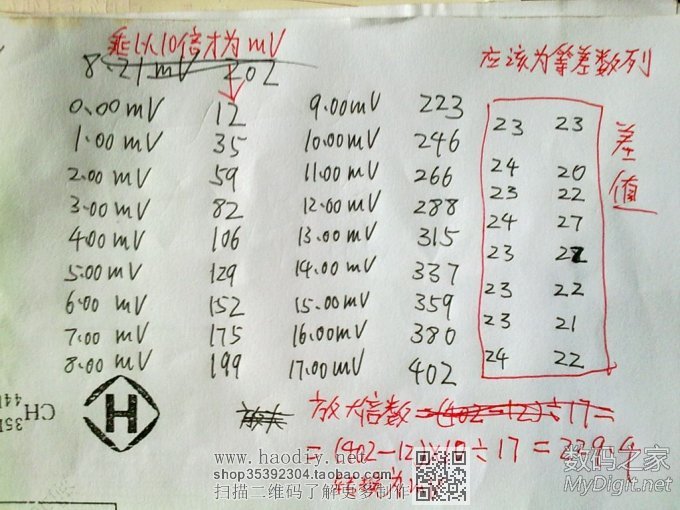 乘以10倍才为mV
8.21mV 202
应该为等差数列
0.00mV 12 9.00mV 223
1.00mV 35 10.00mV 246
2.00mV 59 11.00mV 266
3.00mV 82 12.00mV 288
4.00mV 106 13.00mV 315
5.00mV 129 14.00mV 337
6.00mV 152 15.00mV 359
7.00mV 175 16.00mV 380
8.00mV 199 17.00mV 402
23 23
24 20
23 22
24 27
23 22
23 22
23 21
24 22
差值
H
放大 放大倍数=(402-12)÷17=
=(402-12)×10÷17=229.4
转换为
www.haodiy.net
shop35392304.taobao.com
扫描二维码了解更多制作
数码之家
MyDigit.net